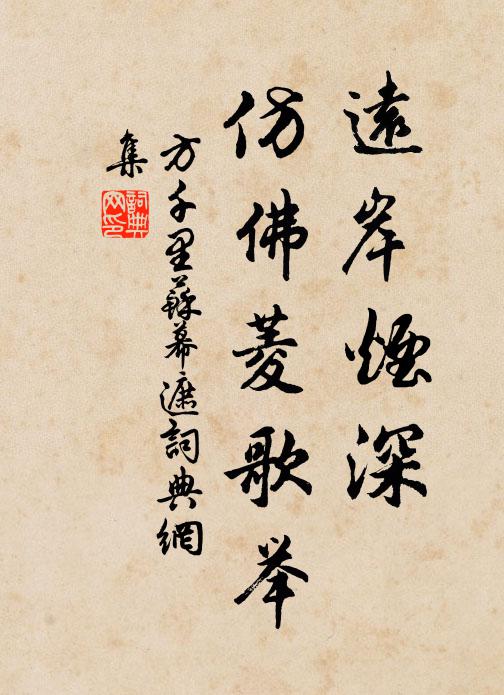 遠岸煙深
仿佛菱歌举
方千里蘇幕遮詞典網
集
詞典
网印